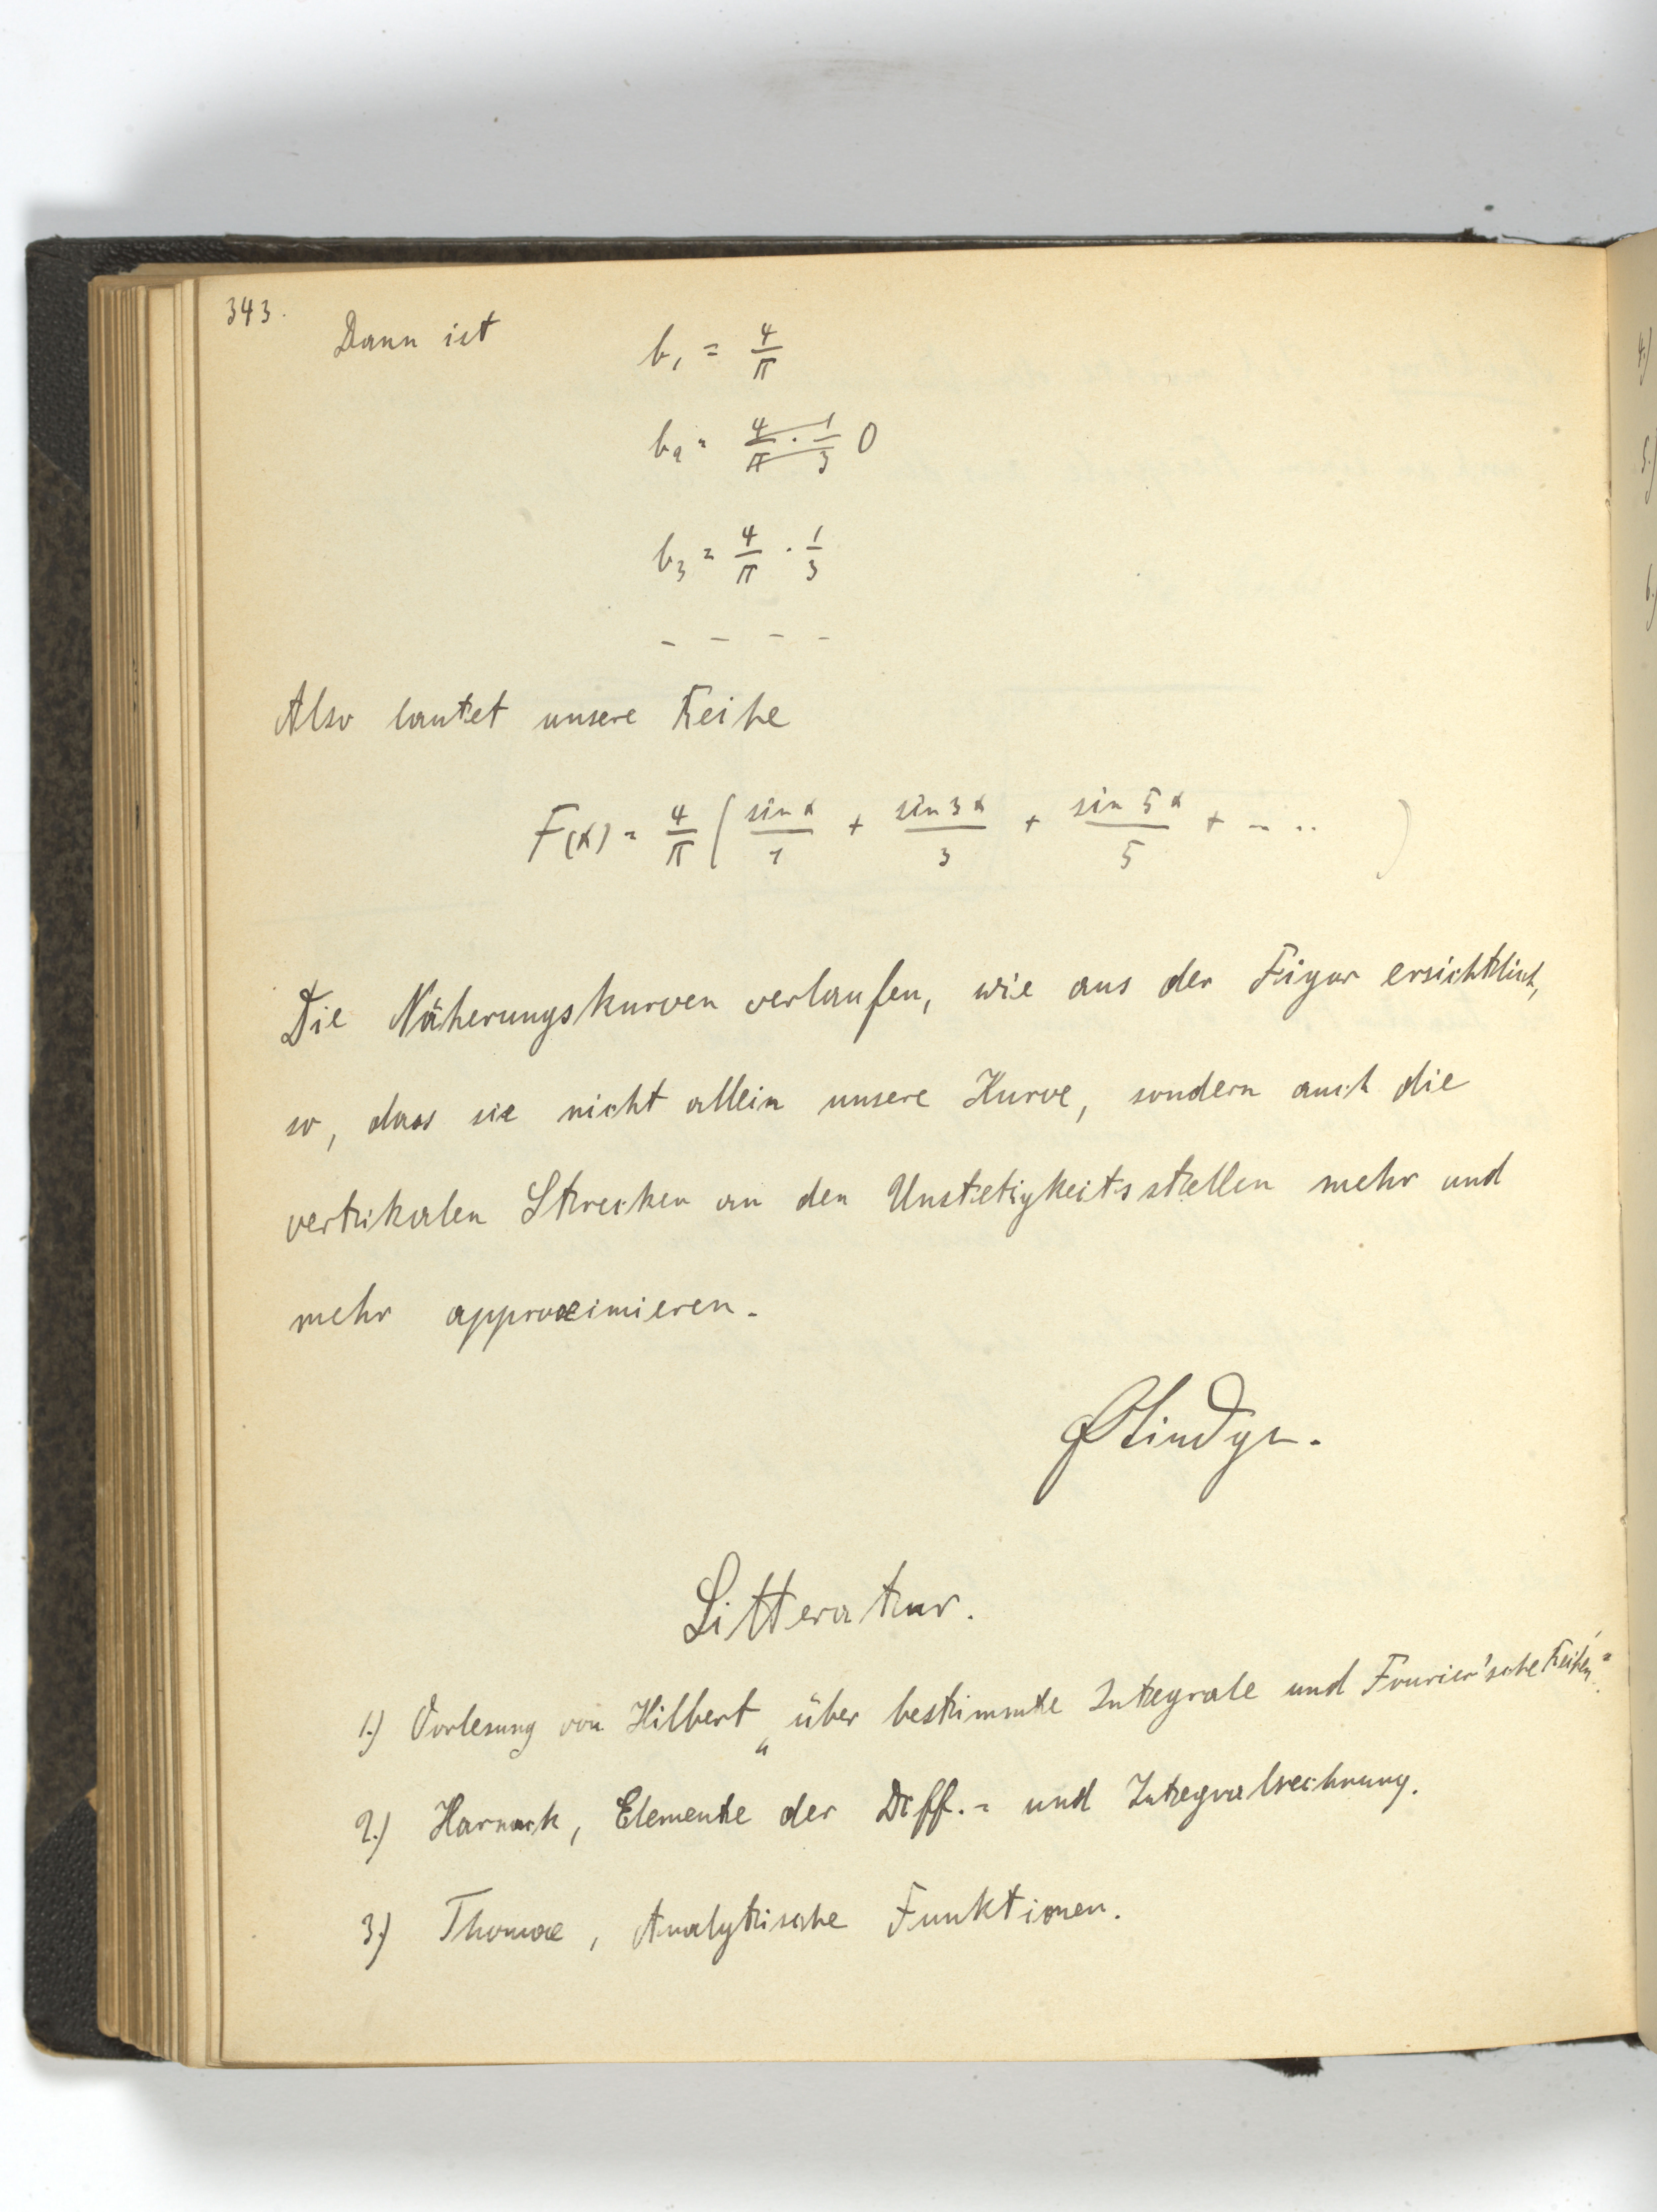 343.
Dann ist b₁ = 4/π
b₂ = 4/π · 1/3 0
b₃ = 4/π · 1/3
- - - -
Also lautet unsere Reihe
F(x) = 4/π ( sin x/1 + sin 3x/3 + sin 5x/5 + - .. )
Die Näherungskurven verlaufen, wie aus der Figur ersichtlich,
so, dass sie nicht allein unsere Kurve, sondern auch die
vertikalen Strecken an den Unstetigkeitsstellen mehr und
mehr approximieren.
Litteratur.
1.) Vorlesung von Hilbert „über bestimmte Integrale und Fourier'sche Reihen"
2.) Harnack, Elemente der Diff.= und Integralrechnung.
3.) Thomae, Analytische Funktionen.
4.)
5.)
6.)